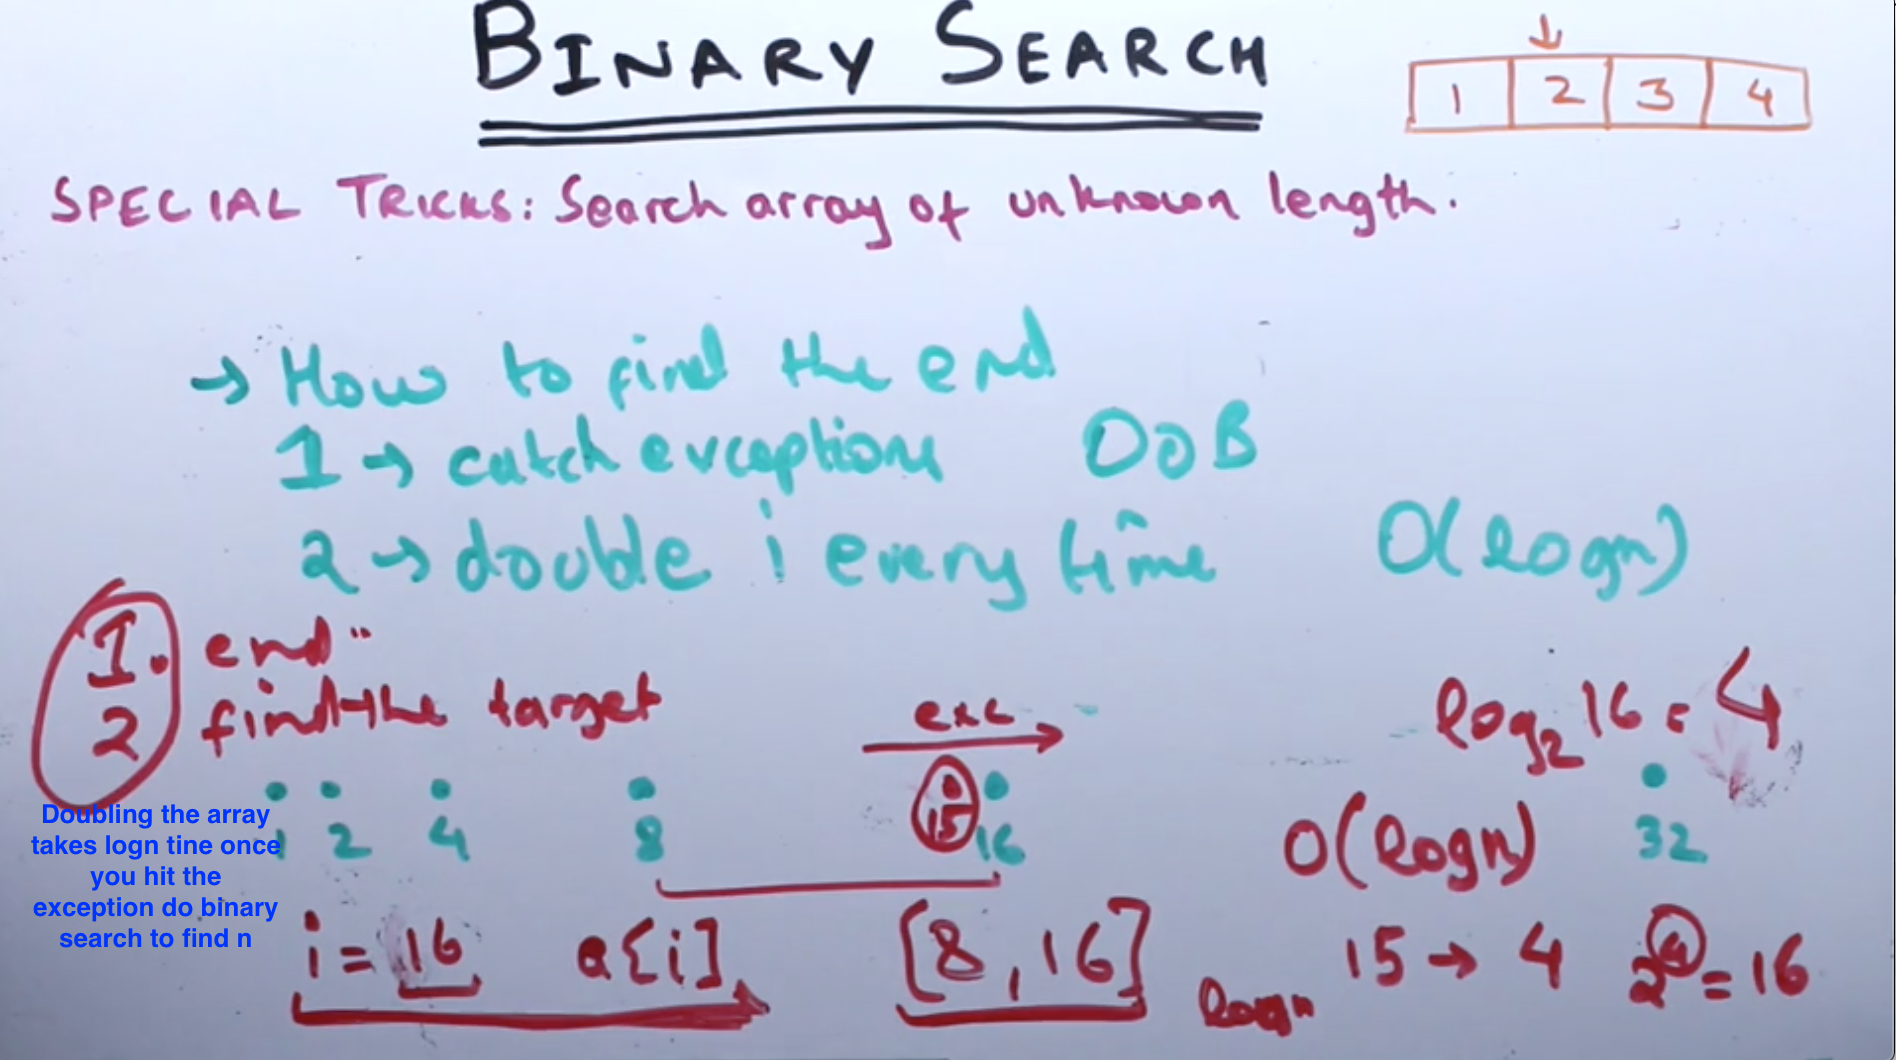 BINARY SEARCH
1 2 3 4
SPECIAL TRICKS: Search array of unknown length.
→ How to find the end
1 → catch exceptions OOB
2 → double i every time O(logn)
1. end
2 find the target
exc
log₂16 = 4
1 2 4 8 15 16
O(logn) 32
Doubling the array
takes logn tine once
you hit the
exception do binary
search to find n
i = 16 a[i] [8, 16]
logn 15 → 4 2⁴ = 16